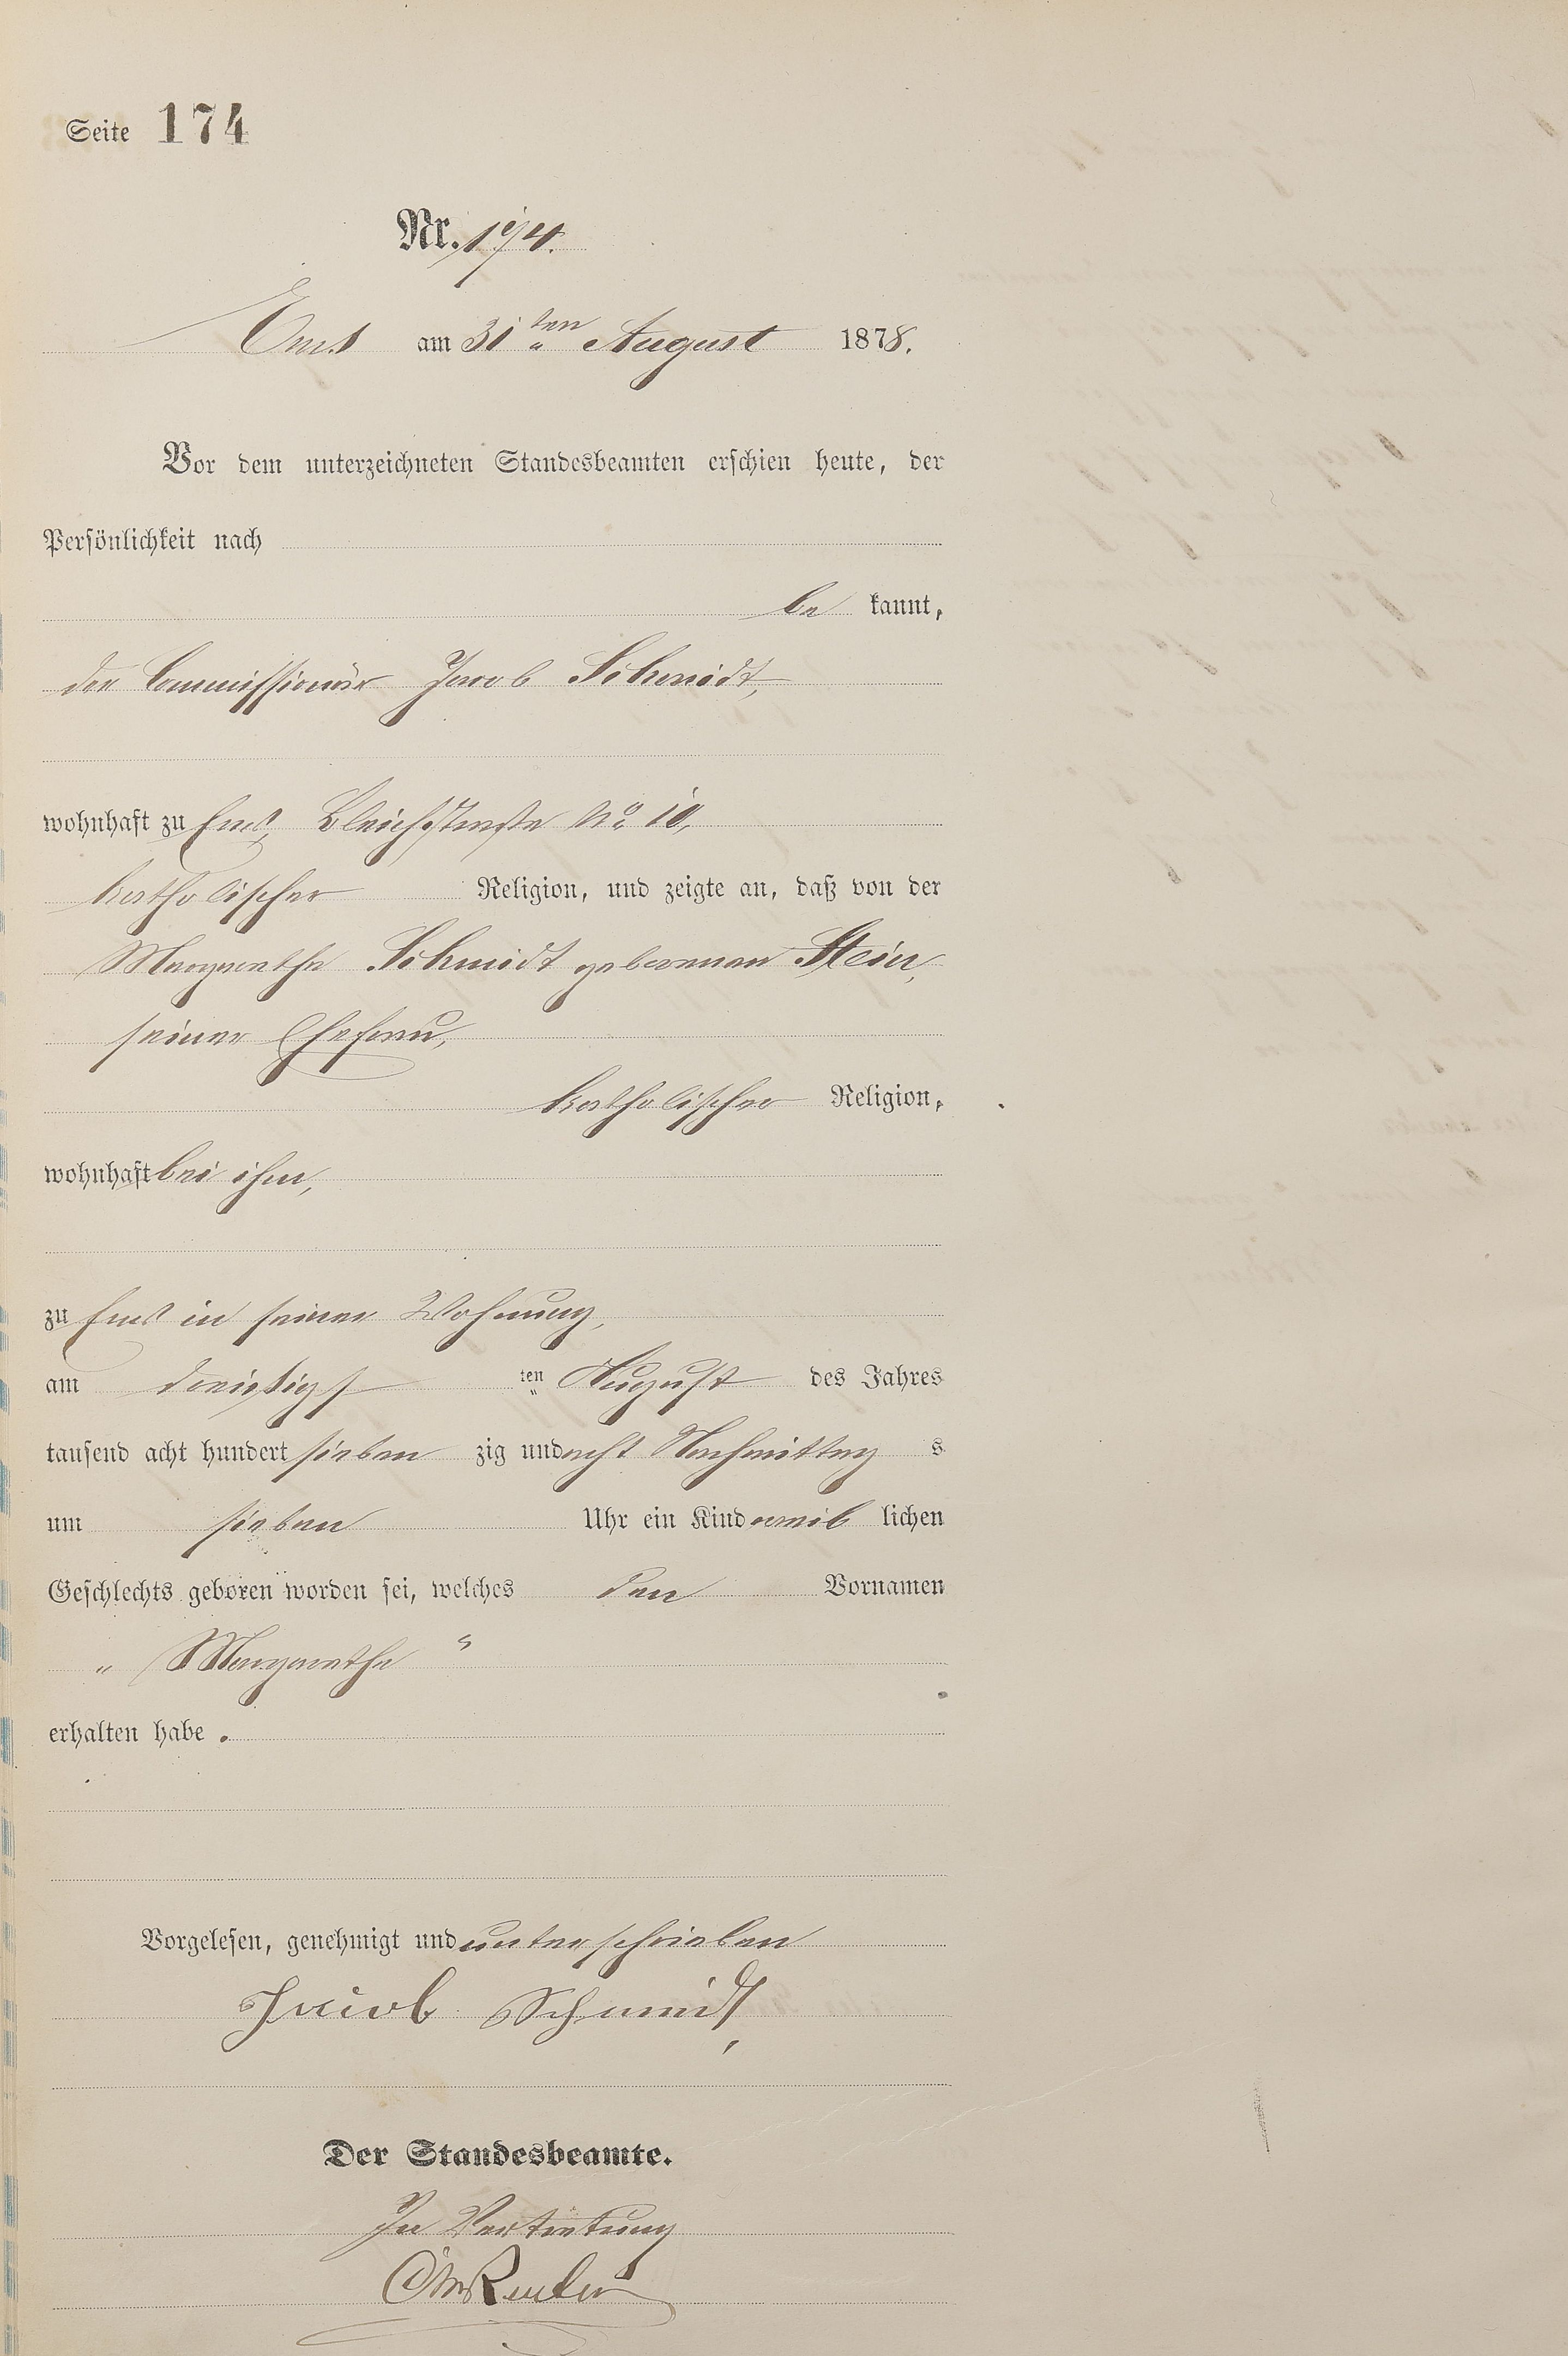 Seite 174
Nr. 174.
Ems am 31ten August 1878.
Vor dem unterzeichneten Standesbeamten erschien heute, der
Persönlichkeit nach
be kannt,
der Commissionär Jacob Schmidt,
wohnhaft zu Ems, Bleichstraße No 10,
katholischer Religion, und zeigte an, daß von der
Margaretha Schmidt geborenen Stein,
seiner Ehefrau,
katholischer Religion,
wohnhaft bei ihm,
zu Ems in seiner Wohnung,
am dreißigst ten August des Jahres
tausend acht hundert sieben zig und acht Nachmittag s
um sieben Uhr ein Kind weib lichen
Geschlechts geboren worden sei, welches den Vornamen
„ Margaretha “
erhalten habe.
Vorgelesen, genehmigt und unterschrieben
Jacob Schmidt
Der Standesbeamte.
In Vertretung